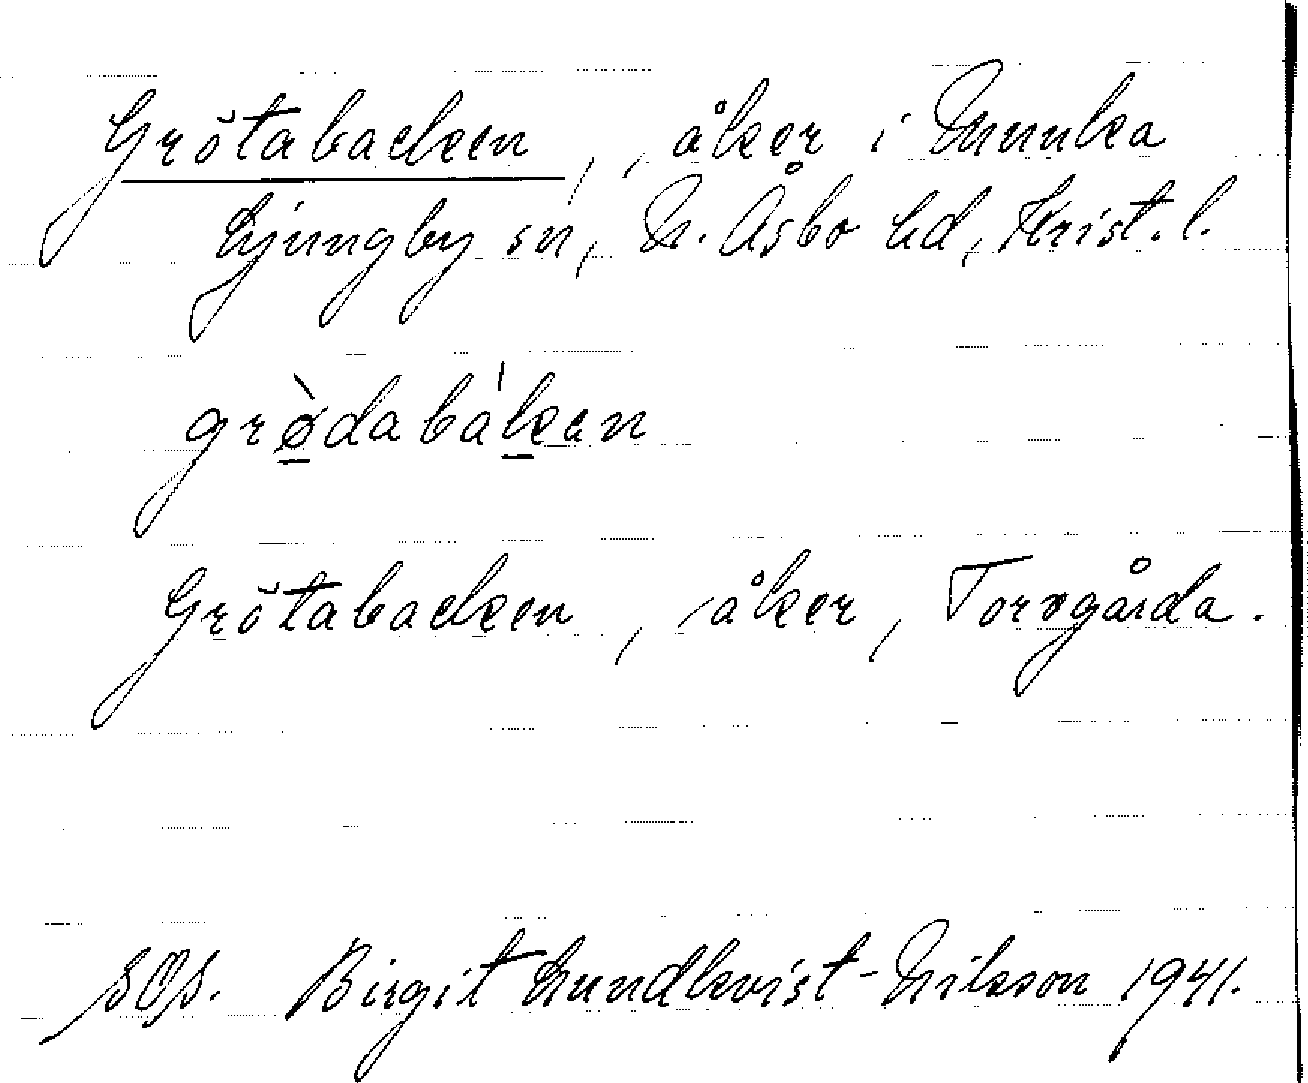 Grötabacken, åker i Munka
Ljungby sn, N. Åsbo hd, Krist. l.
grø̀daba'kan
Grötabacken, åker, Torrgårda.
SOS. Birgit Lundkvist-Nilsson 1941.